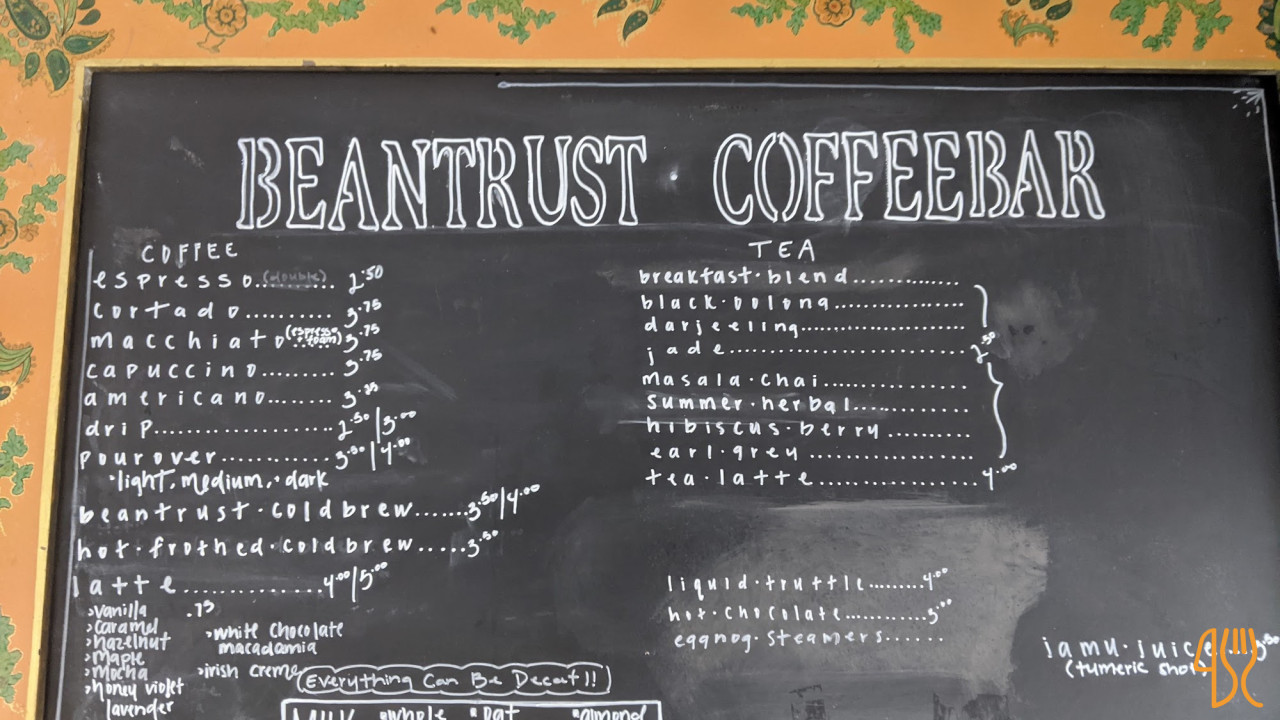 BEANTRUST COFFEEBAR
COFFEE
espresso (double)............ 2.50
cortado.......... 3.75
macchiato (espresso + foam) 3.75
capuccino......... 3.75
americano........ 3.25
drip................... 2.50/3.00
pourover............. 3.50/4.00
·light, medium, ·dark
beantrust·coldbrew.......3.50/4.00
hot·frothed·coldbrew.....3.50
latte...............4.00/5.00
>vanilla .75
>caramel
>hazelnut
>maple
>mocha
>honey violet
lavender
>white chocolate
macadamia
>irish creme
Everything Can Be Decaf!!
MILK *whole *oat *almond
TEA
breakfast·blend.............
black·oolong................
darjeeling.....................
jade..........................
2.50
masala·chai................
summer·herbal.............
hibiscus·berry..........
earl·grey..................
tea·latte..................4.00
liquid·truffle.........4.00
hot·chocolate............3.00
eggnog·steamers.......
jamu·juice
(tumeric shot)